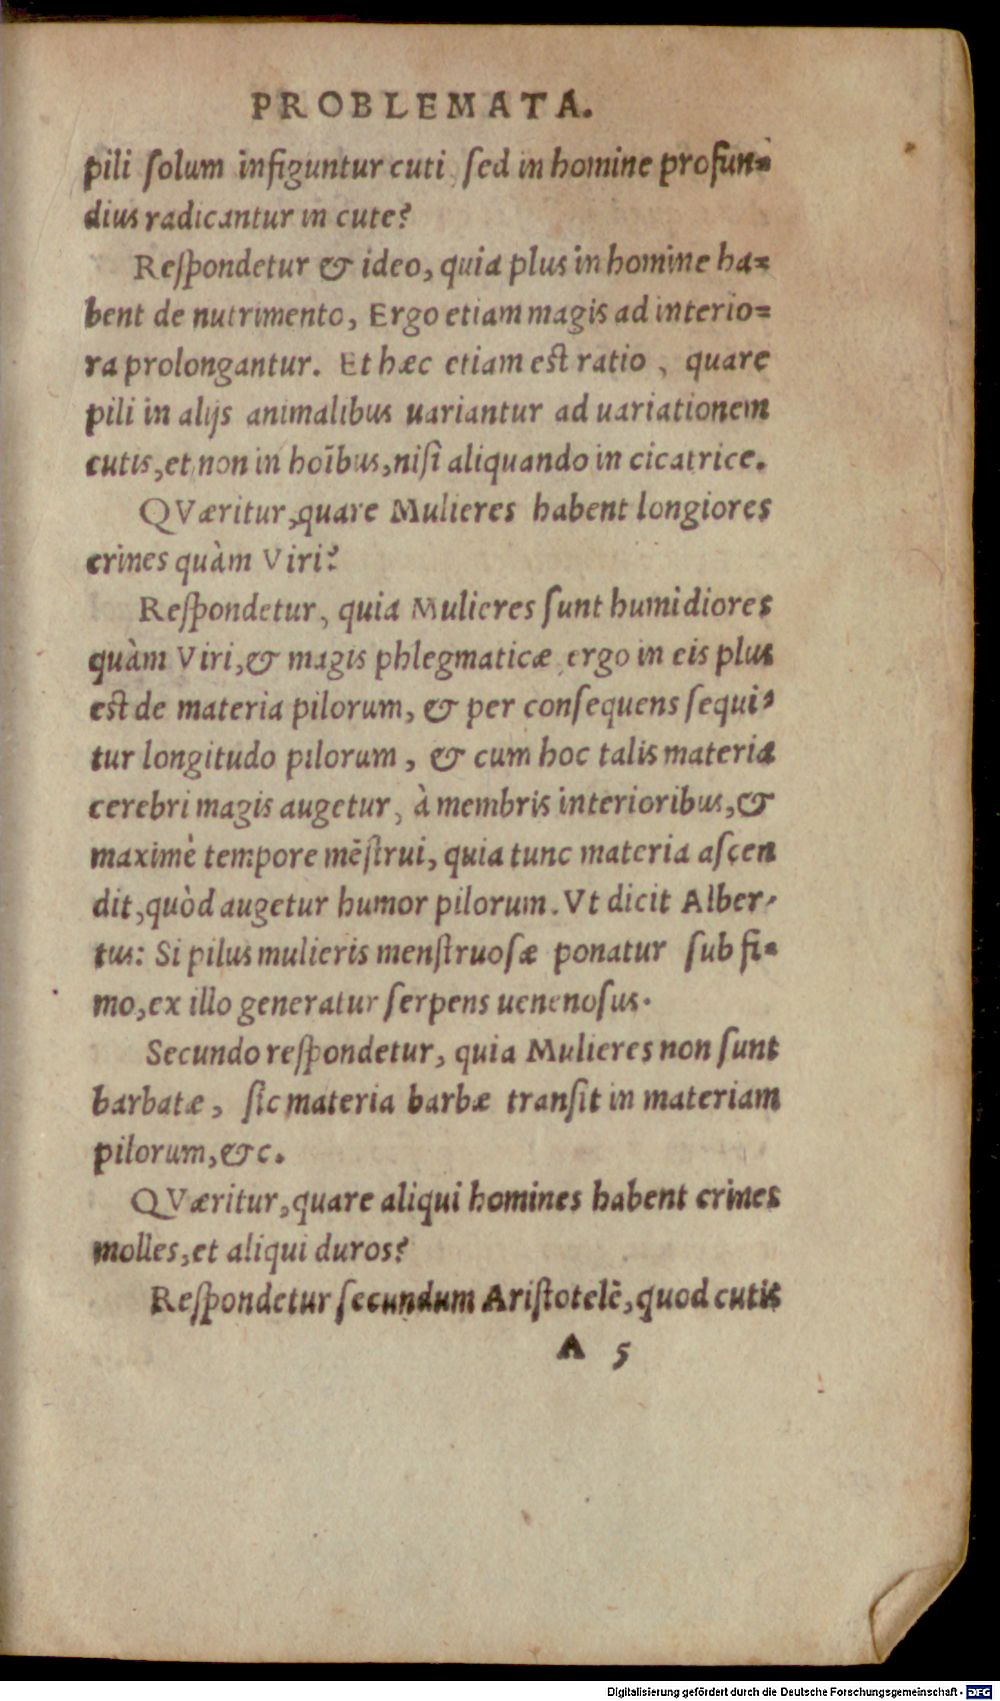 PROBLEMATA.
pili ſolum infiguntur cuti, ſed in homine profun=
dius radicantur in cute?
Reſpondetur & ideo, quia plus in homine ha=
bent de nutrimento, Ergo etiam magis ad interio=
ra prolongantur. Et hæc etiam est ratio, quare
pili in alijs animalibus uariantur ad uariationem
cutis, et non in hoībus, niſi aliquando in cicatrice.
QVæritur, quare Mulieres habent longiores
crines quàm Viri?
Reſpondetur, quia Mulieres ſunt humidiores
quàm Viri, & magis phlegmaticæ, ergo in eis plus
est de materia pilorum, & per conſequens ſequi=
tur longitudo pilorum, & cum hoc talis materia
cerebri magis augetur, à membris interioribus, &
maximè tempore mēſtrui, quia tunc materia aſcen
dit, quòd augetur humor pilorum. Vt dicit Alber=
tus: Si pilus mulieris menſtruoſæ ponatur ſub fi=
mo, ex illo generatur ſerpens uenenoſus.
Secundo reſpondetur, quia Mulieres non ſunt
barbatæ, ſic materia barbæ tranſit in materiam
pilorum, &c.
QVæritur, quare aliqui homines habent crines
molles, et aliqui duros?
Reſpondetur ſecundum Ariſtotelē, quod cutis
A 5
Digitalisierung gefördert durch die Deutsche Forschungsgemeinschaft - DFG